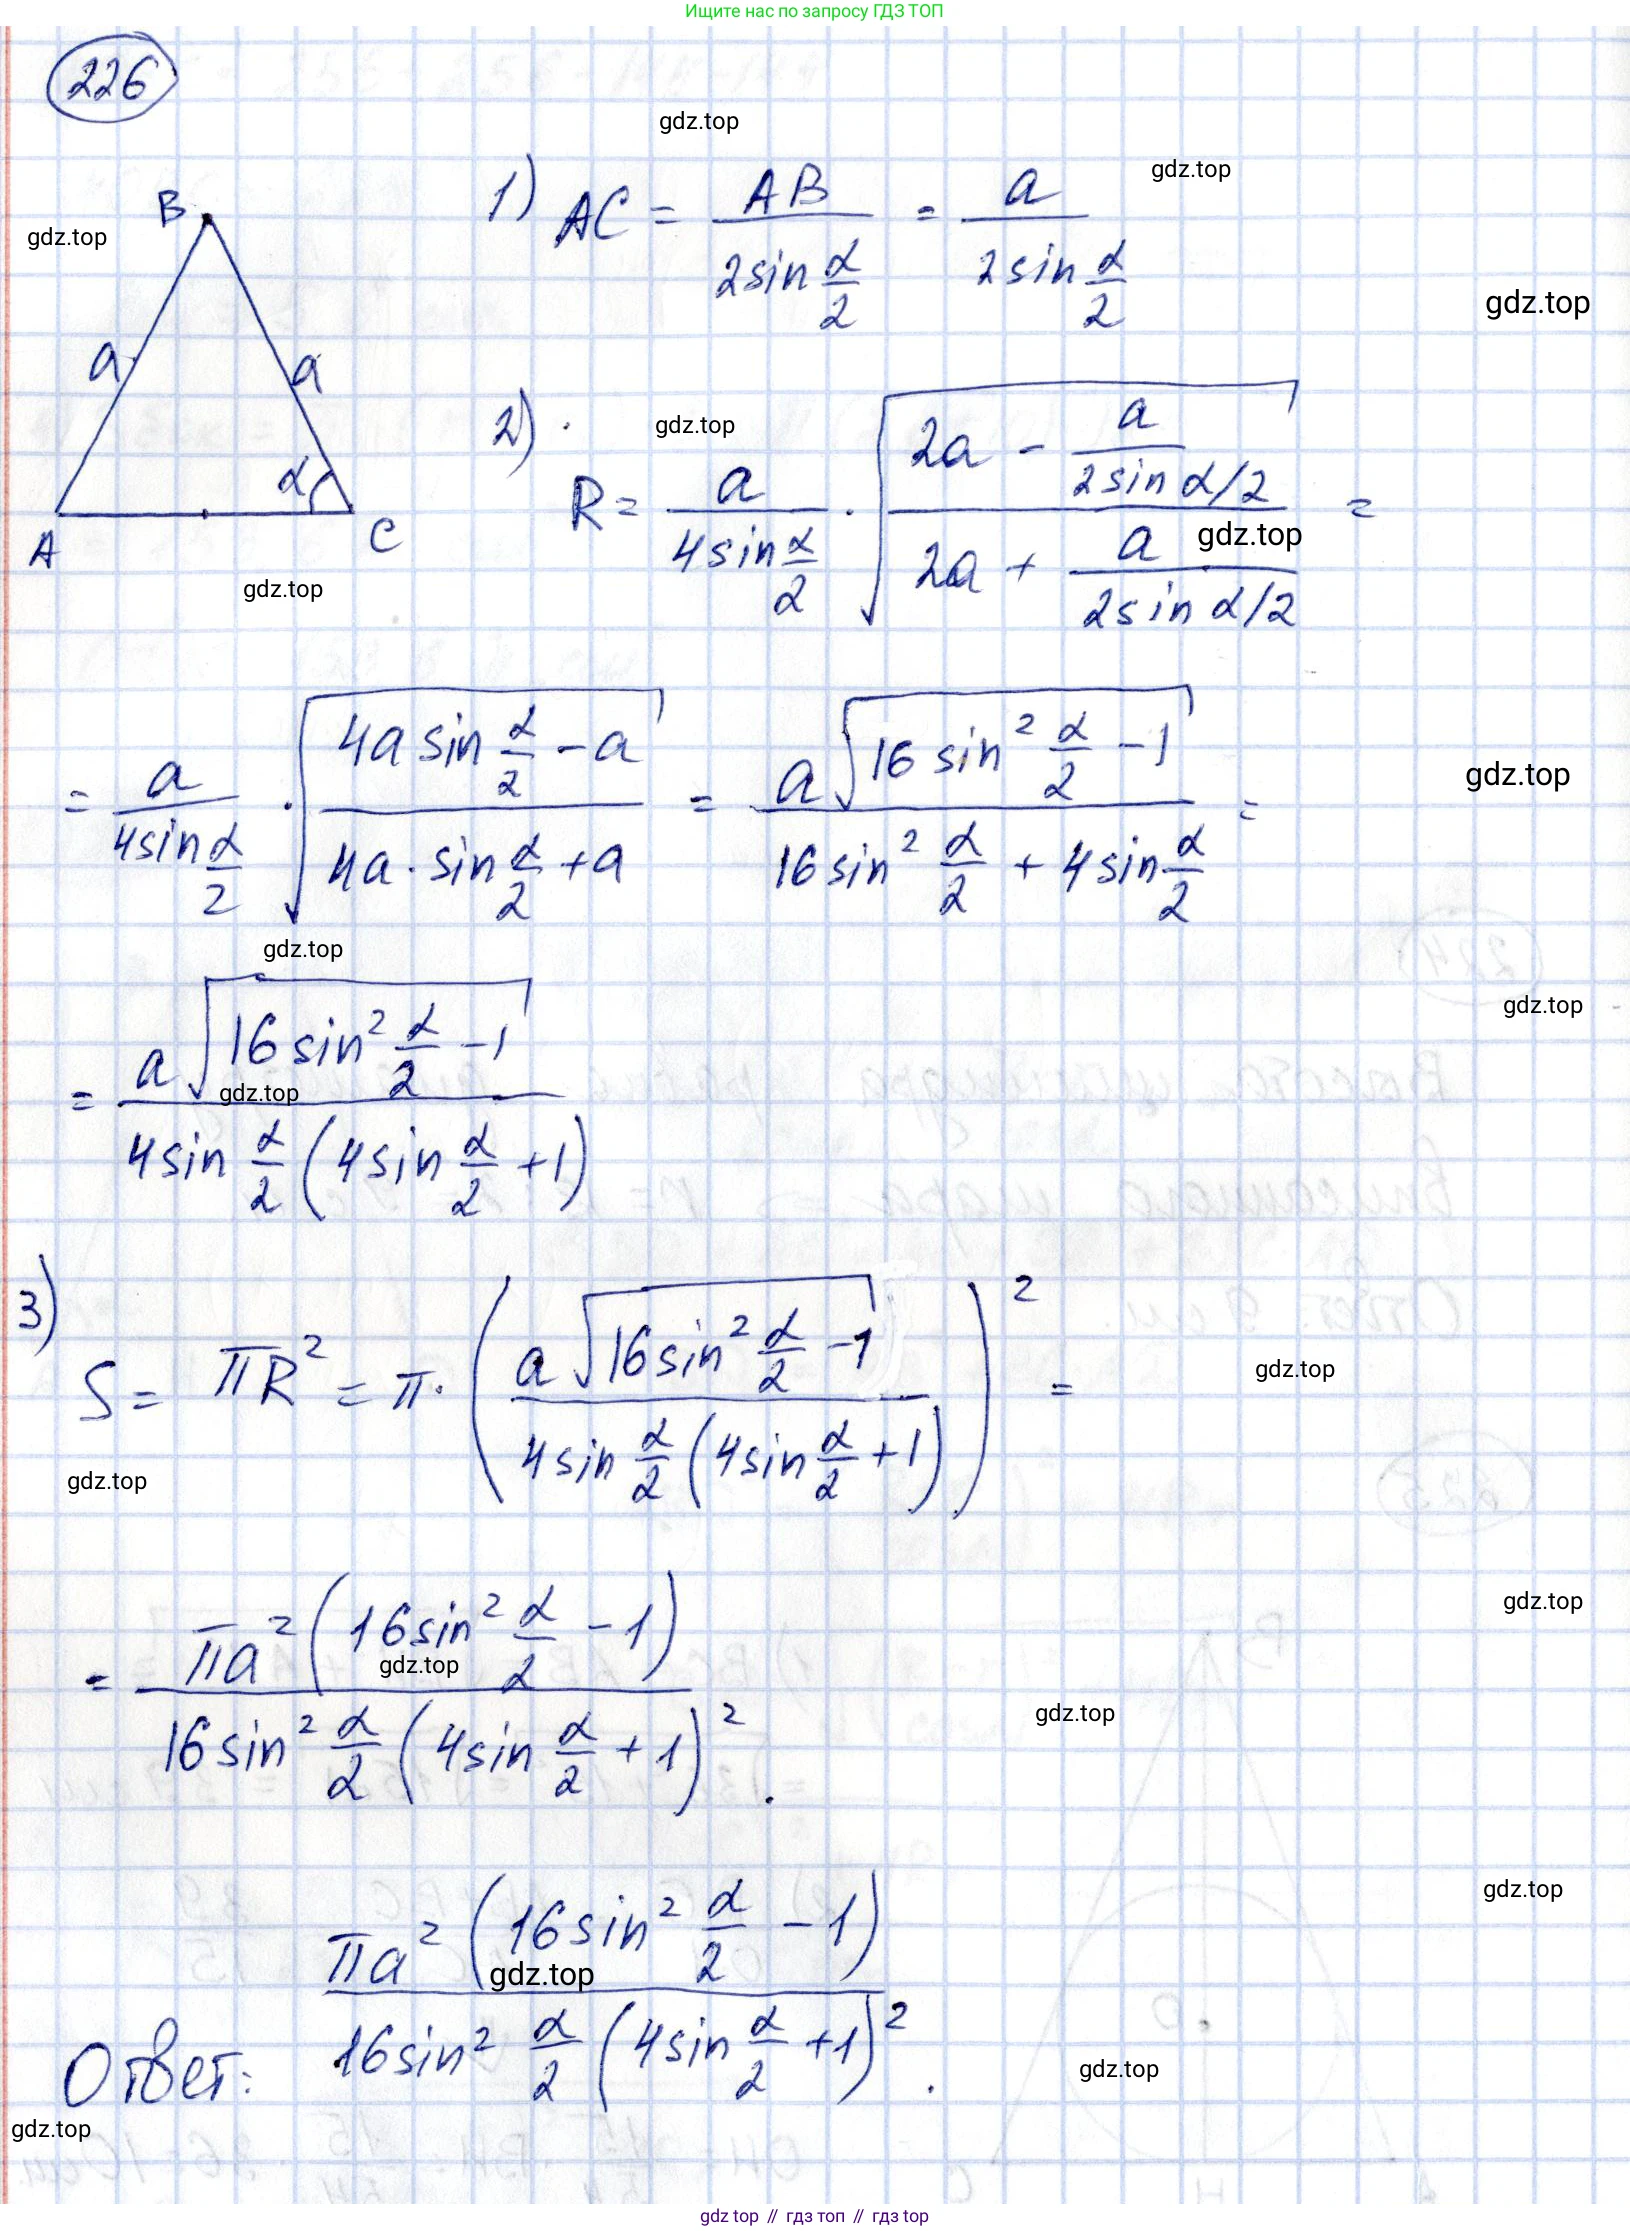 Ищите нас по запросу ГДЗ ТОП
226
gdz.top
1) AC = AB / (2sin α/2) = a / (2sin α/2)
gdz.top
B
gdz.top
gdz.top
a a
2) · gdz.top
R = a / (4sin α/2) · √((2a - a / (2sin α/2)) / (2a + a / (2sin α/2))) =
gdz.top
α
A C
gdz.top
= a / (4sin α/2) · √((4a sin α/2 - a) / (4a · sin α/2 + a)) = a√(16 sin² α/2 - 1) / (16sin² α/2 + 4sin α/2) =
gdz.top
gdz.top
gdz.top
= a√(16sin² α/2 - 1) / (4sin α/2 (4sin α/2 + 1))
gdz.top
3)
S = πR² = π · (a√(16sin² α/2 - 1) / (4sin α/2 (4sin α/2 + 1)))² =
gdz.top
gdz.top
gdz.top
= πa² (16sin² α/2 - 1) / (16sin² α/2 (4sin α/2 + 1)²).
gdz.top
gdz.top
gdz.top
Ответ: πa² (16sin² α/2 - 1) / (16sin² α/2 (4sin α/2 + 1)²).
gdz.top
gdz.top
gdz.top
gdz top // гдз топ // гдз top